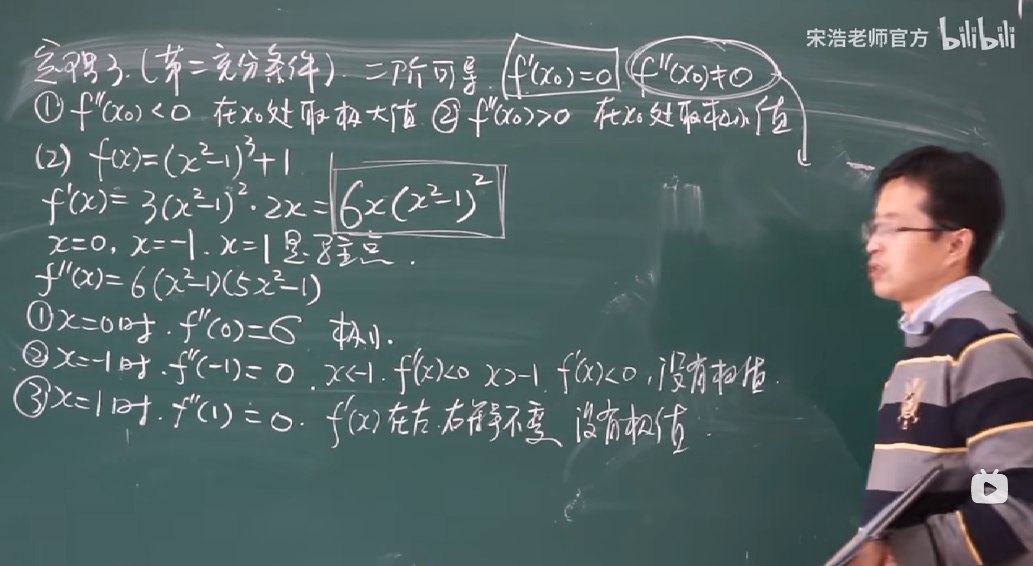 宋浩老师官方 bilibili
定理3.(第二充分条件). 二阶可导. f'(x₀)=0 f''(x₀)≠0
① f''(x₀)<0 在x₀处取极大值 ② f''(x₀)>0 在x₀处取极小值
(2) f(x)=(x²-1)³+1
f'(x)=3(x²-1)²·2x=6x(x²-1)²
x=0, x=-1. x=1是驻点.
f''(x)=6(x²-1)(5x²-1)
①x=0时. f''(0)=6 极小.
②x=-1时. f''(-1)=0. x<-1. f'(x)<0 x>-1. f'(x)<0, 没有极值.
③x=1时. f''(1)=0. f'(x)在左.右符号不变 没有极值.